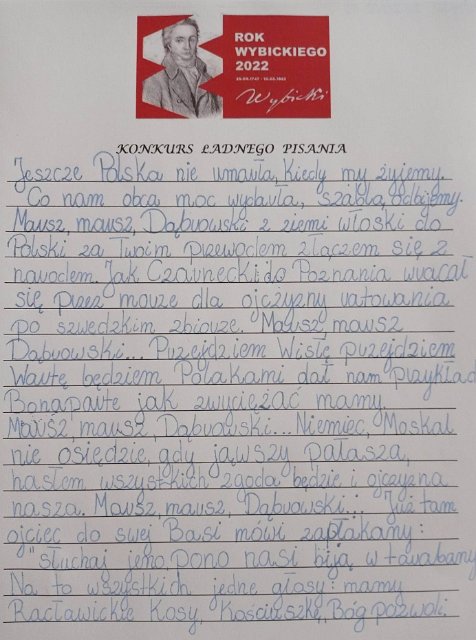 ROK
WYBICKIEGO
2022
Wybicki
KONKURS ŁADNEGO PISANIA
Jeszcze Polska nie umarła, Kiedy my żyjemy.
Co nam obca moc wydarła, szablą odbijemy.
Marsz, marsz, Dąbrowski z ziemi włoski do
Polski za Twoim przewodem złączem się z
narodem. Jak Czarnecki do Poznania wracał
się przez morze dla ojczyzny ratowania
po szwedzkim zbiorze. Marsz, marsz
Dąbrowski... Przejdziem Wisłę przejdziem
Wartę będziem Polakami dał nam przykład
Bonaparte jak zwyciężać mamy.
Marsz, marsz, Dąbrowski... Niemiec, Moskal
nie osiędzie, gdy jąwszy pałasza,
hasłem wszystkich zgoda będzie i ojczyzna
nasza. Marsz, marsz, Dąbrowski... Już tam
ojciec do swej Basi mówi zapłakany:
"słuchaj jeno, pono nasi biją w tarabany
Na to wszystkich jedne głosy: mamy
Racławickie Kosy, Kościuszkę, Bóg pozwoli.